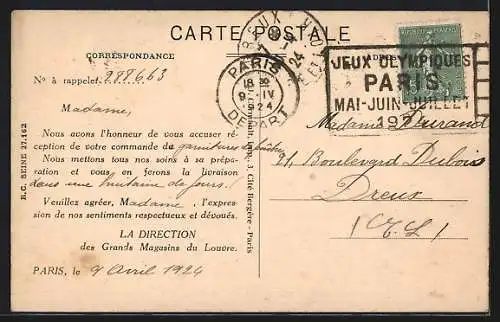 CARTE POSTALE
CORRESPONDANCE
N° à rappeler 288663
Madame,
Nous avons l'honneur de vous accuser ré-
ception de votre commande du garniture
Nous mettons tous nos soins à sa prépa-
ration et vous en ferons la livraison
dans une huitaine de jours!
Veuillez agréer, Madame, l'expres-
sion de nos sentiments respectueux et dévoués.
LA DIRECTION
des Grands Magasins du Louvre.
PARIS, le 9 Avril 1924
R.C. SEINE 27.162
Cité Bergère - Paris
PARIS
18 30
9 - IV
1924
DEPART
DREUX
24
JEUX OLYMPIQUES
PARIS
MAI-JUIN-JUILLET
1924
Madame Durand
21, Boulevard Dubois
Dreux
(E.L.)